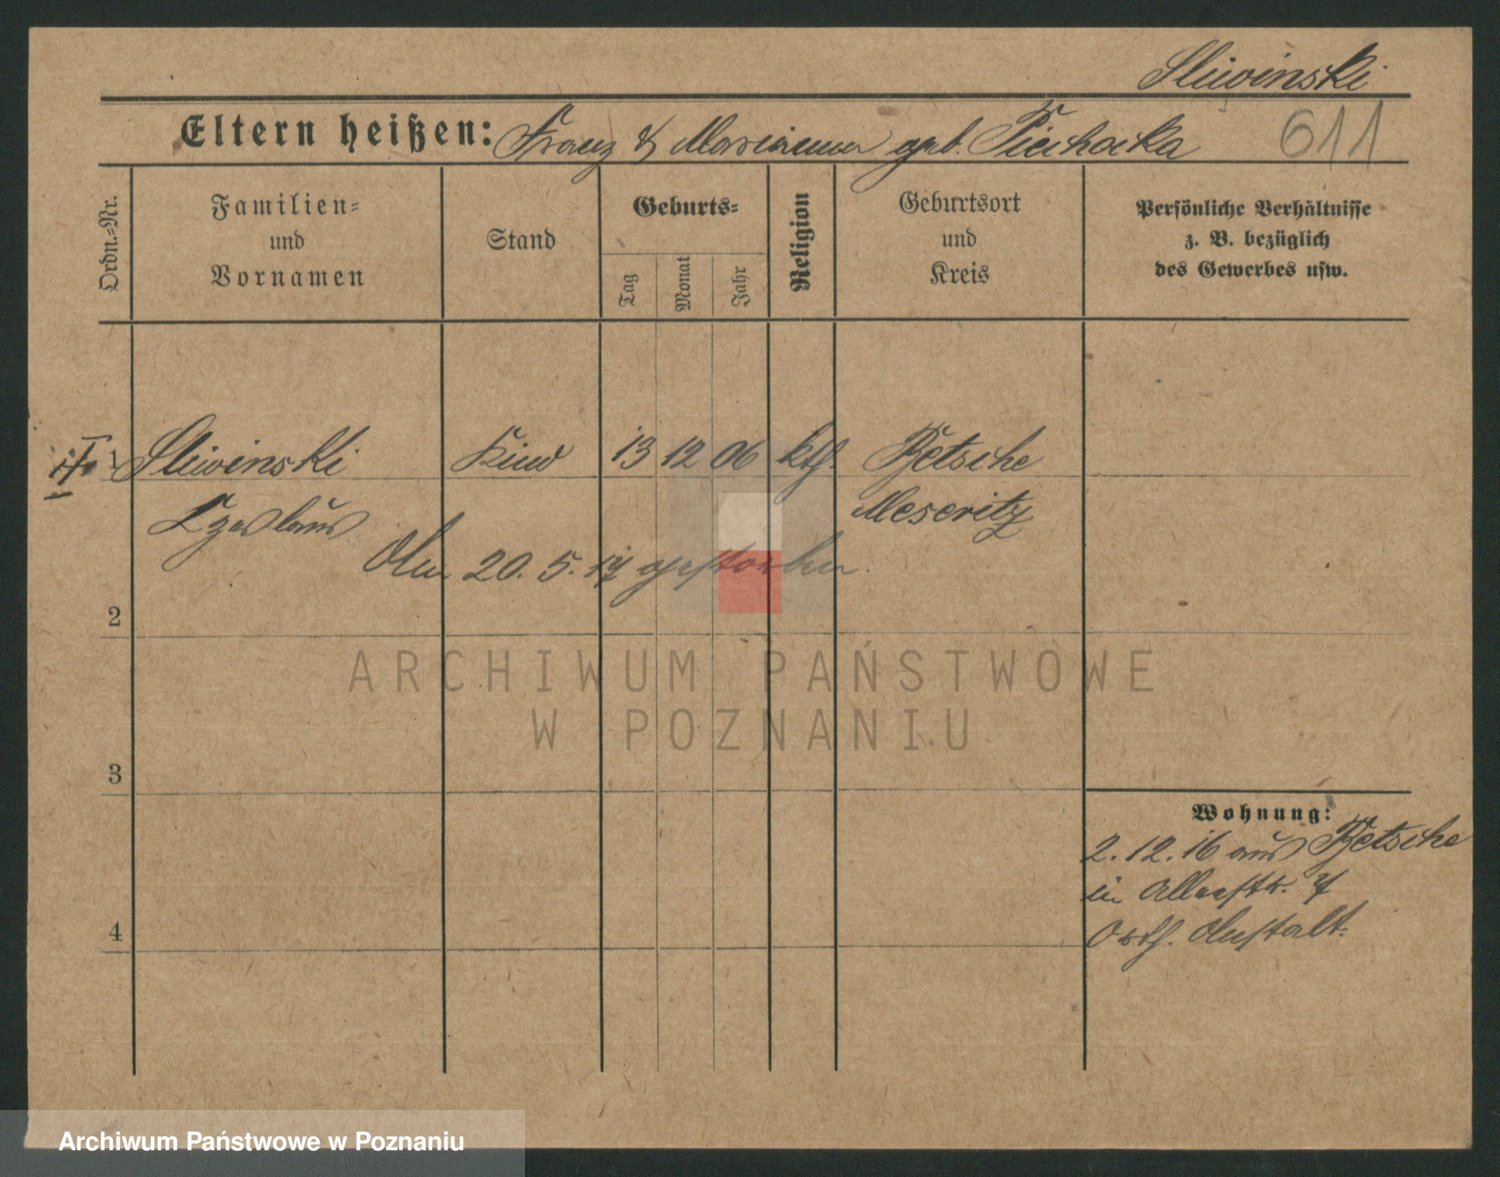 Sliwinski
Eltern heißen: Franz & Marianna geb. Piechocka 611
Ordn.-Nr.
Familien-
und
Vornamen
Stand
Geburts-
Tag
Monat
Jahr
Religion
Geburtsort
und
Kreis
Persönliche Verhältnisse
z. B. bezüglich
des Gewerbes usw.
1 Sliwinski Kind 13 12 06 kth. Betsche
Czeslaus Meseritz
Am 20. 5. 17 gestorben.
2
ARCHIWUM PAŃSTWOWE
W POZNANIU
3
Wohnung:
2.12.16 aus Betsche
in
Orth. Anstalt.
4
Archiwum Państwowe w Poznaniu